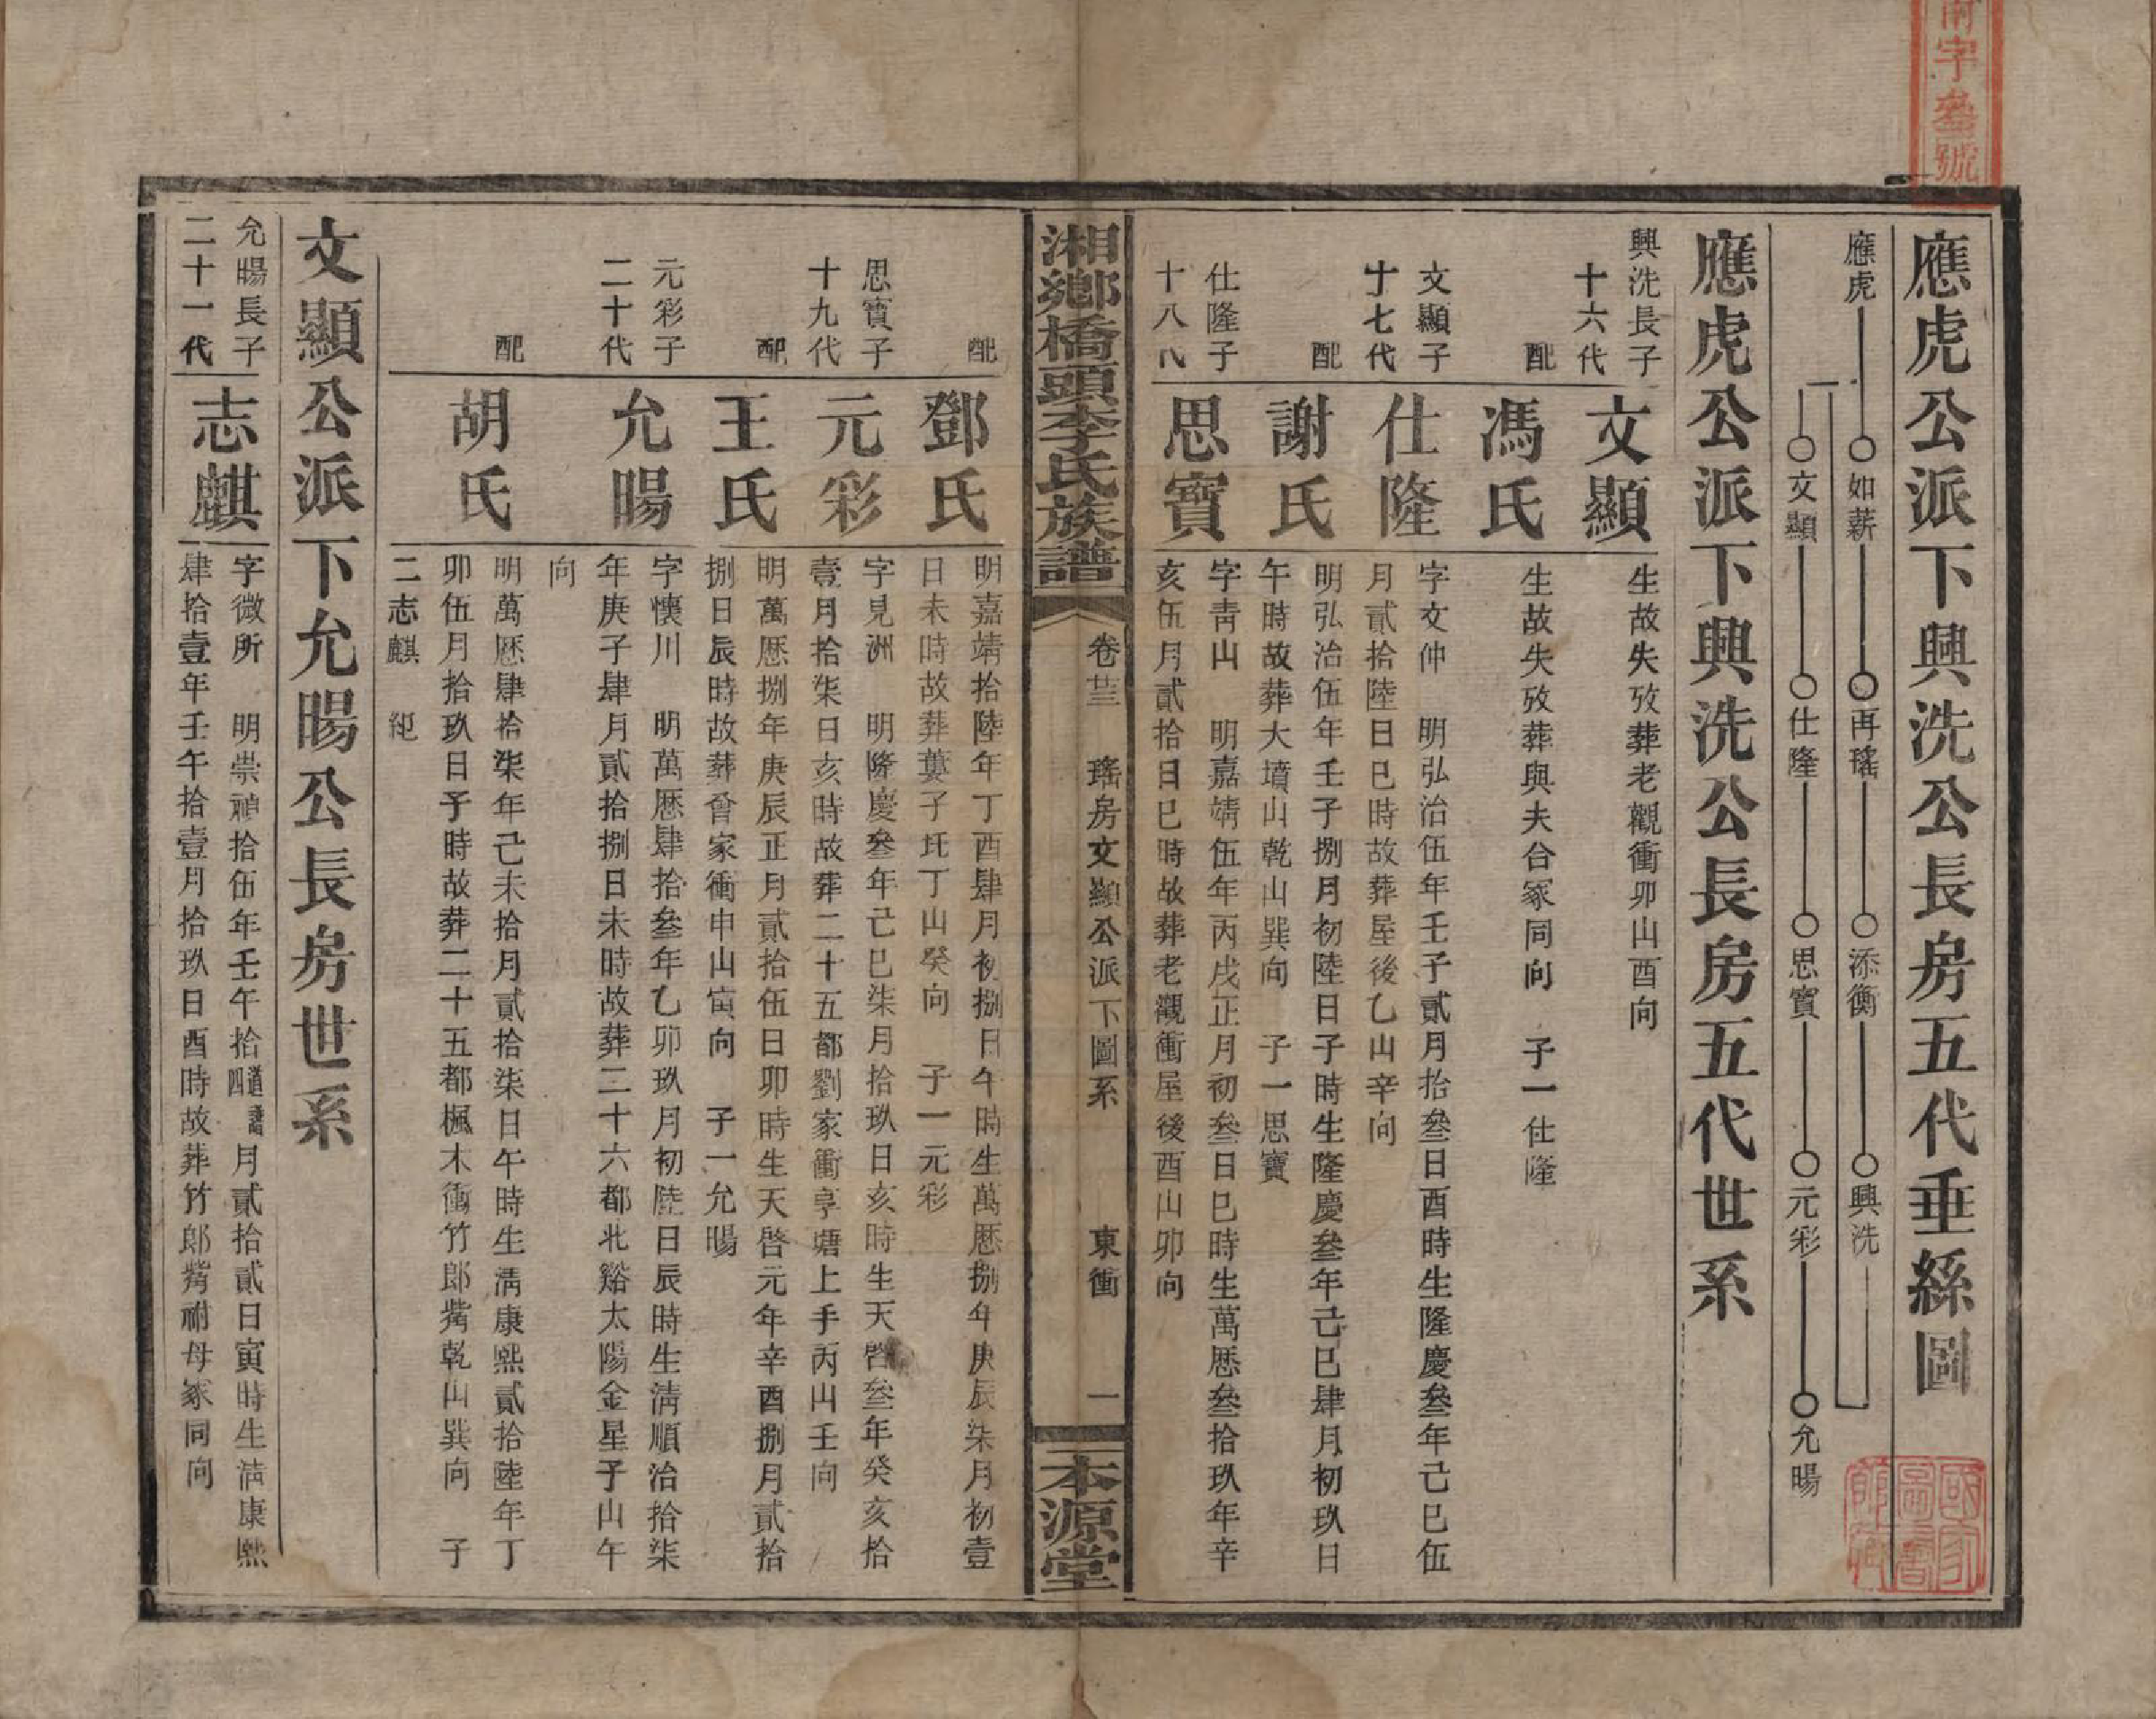 字叄號
應虎公派下興洗公長房五代垂絲圖
應虎 如薪 再瑤 添衡 興洗
文顯 仕隆 思寶 元彩 允暘
應虎公派下興洗公長房五代世系
興洗長子
十六代 文顯 生故失攷葬老觀衝卯山酉向
配 馮氏 生故失攷葬與夫合冢同向 子一仕隆
文顯子
十七代 仕隆 字文仲 明弘治伍年壬子貳月拾叄日酉時生隆慶叄年己巳伍
月貳拾陸日巳時故葬屋後乙山辛向
配 謝氏 明弘治伍年壬子捌月初陸日子時生隆慶叄年己巳肆月初玖日
午時故葬大墳山乾山巽向 子一思寶
仕隆子
十八代 思寶 字青山 明嘉靖伍年丙戌正月初叄日巳時生萬厯叄拾玖年辛
亥伍月貳拾日巳時故葬老觀衝屋後酉山卯向
湘鄉橋頭李氏族譜 卷廿三 瑤房文顯公派下圖系 東衝 一 本源堂
配 鄧氏 明嘉靖拾陸年丁酉肆月初捌日午時生萬厯捌年庚辰柒月初壹
日未時故葬子圫丁山癸向 子一元彩
思寶子
十九代 元彩 字見洲 明隆慶叄年己巳柒月拾玖日亥時生天啓叄年癸亥拾
壹月拾柒日亥時故葬二十五都劉家衝享塘上手丙山壬向
配 王氏 明萬厯捌年庚辰正月貳拾伍日卯時生天啓元年辛酉捌月貳拾
捌日辰時故葬會家衝申山寅向 子一允暘
元彩子
二十代 允暘 字懷川 明萬厯肆拾叄年乙卯玖月初陸日辰時生清順治拾柒
年庚子肆月貳拾捌日未時故葬二十六都北谿太陽金星子山午
向
配 胡氏 明萬厯肆拾柒年己未拾月貳拾柒日午時生清康熙貳拾陸年丁
卯伍月拾玖日子時故葬二十五都楓木衝竹郎觜乾山巽向 子
二志麒 紀
文顯公派下允暘公長房世系
允暘長子
二十一代 志麒 字微所 明崇禎拾伍年壬午拾道譜四月貳拾貳日寅時生清康熙
肆拾壹年壬午拾壹月拾玖日酉時故葬竹郎觜祔母冢同向
國家圖書館藏